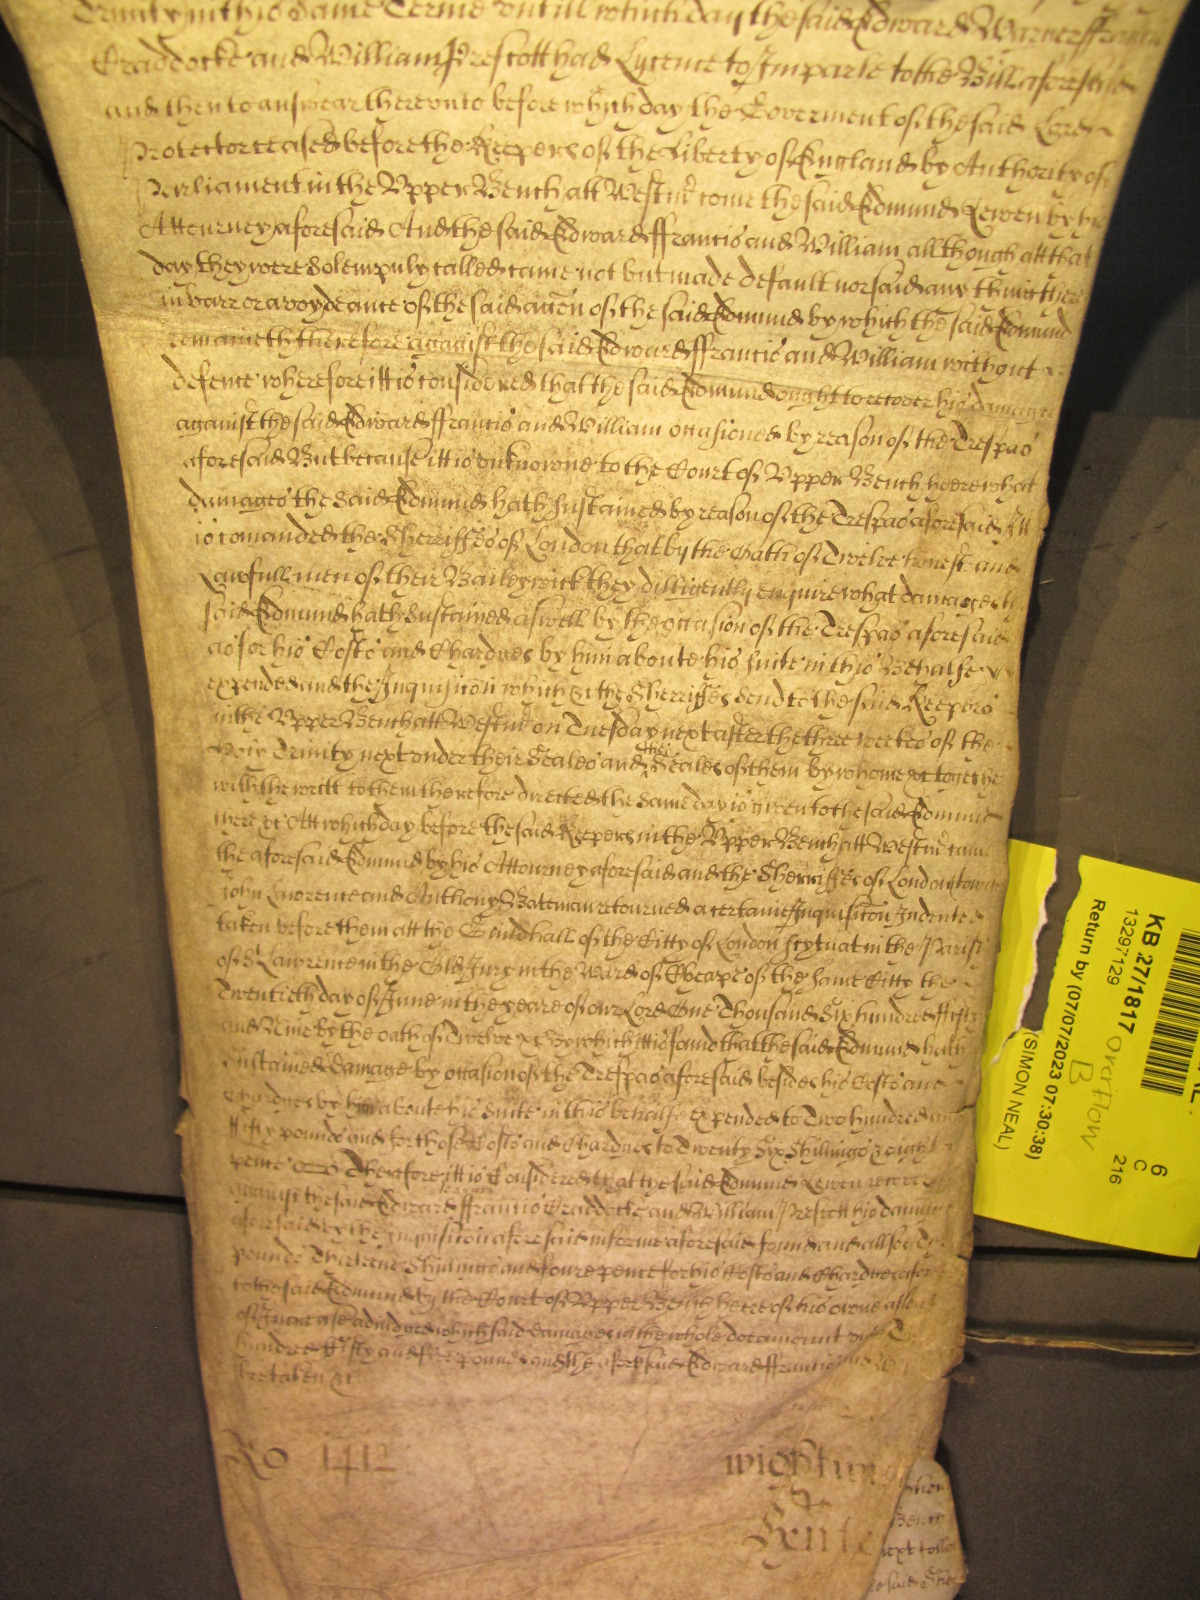 Trinity in this same Terme untill which day the said Edward Warner ffrancis
Craddocke and William Prescott had Lycence to Imparle to the Bill aforesaid
and then to answear thereonto before which day the Goverment of the said Lord
Protector ceased before the Keepers of the Liberty of England by Authority of
Parliament in the Upper Bench att Westmr come the said Edmund Lewen by his
Attourney aforesaid And the said Edward ffrancis and William allthough att that
day they were solempnly called came not but made default nor said any thing there
in barr or avoydeance of the said accon of the said Edmund by which the said Edmund
remaineth therefore against the said Edward ffrancis and William without
defence wherefore itt is considered that the said Edmund ought to recover his damages
against the said Edward ffrancis and William occasioned by reason of the Trespas
aforesaid But because itt is unknowne to the Court of Upper Bench heere what
damages the said Edmund hath sustained by reason of the Trespas aforesaid Itt
is comanded the Sherriffes of London that by the Oath of Twelve honest and
Lawfull men of their Bailywick they dilligently enquire what damages the
said Edmund hath Sustained aswell by the occasion of the Trespas aforesaid
as for his Costs and Chardges by him aboute his suite in this Behalfe
expended and the Inquisicon which &c the Sherriffes send to the said Keepers
in the Upper Bench att Westmr on Tuesday next after the three weekes of the
Holy Trinity next under their Seales and the Seales of them by whome &c together
with the writt to them therefore directed the same day is given to the said Edmund
there &c Att which day before the said Keepers in the Upper Bench att Westmr came
the aforesaid Edmund by his Attourney aforesaid and the Sherriffes of London to witt
John Lawrence and Anthony Bateman retourned a certaine Inquisicon Indented
taken before them att the Guildhall of the Citty of London scytuat in the Parish
of St Lawrence in the Old Jury in the Ward of Cheape of the same Citty the
Twentieth day of June in the yeare of our Lord One Thousand Six hundred ffifty
and Nine by the oath of Twelve &c By which itt is found that the said Edmund hath
sustained damage by occasion of the Trespas aforesaid besides his Costs and
Chardges by him aboute his suite in this behalfe expended to Two hundred and
ffifty pounds and for those Costs and Chardges to Twenty Six Shillings & eight
pence Therefore itt is Considered that the said Edmund Lewen recover
against the said Edward ffrancis Craddocke and William Prescott his damages
aforesaid by the Inquisicon aforesaid in forme aforesaid found and allsoe
pounds Thirteene Shillings and foure pence for his Costs and Chardges aforesaid
to the said Edmund by the Court of Upper Bench heere of his owne assent
of Increase adiudged which said damages in the whole doe amount
hundred ffifty and pounds and the aforesaid Edward ffrancis and
bee taken &c
Ro 1412
KB 27/1817 overflow
13297129 B
Return by (07/07/2023 07:30:38)
(SIMON NEAL)
6
C
216